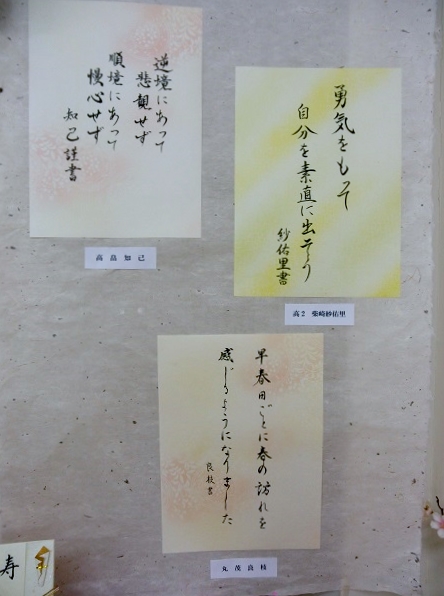 逆境にあって
悲観せず
順境にあって
慢心せず
知己謹書
高畠知己
勇気をもって
自分を素直に出そう
紗佑里書
高2 柴崎紗佑里
早春日ごとに春の訪れを
感じるようになりました
良枝書
丸茂良枝
寿